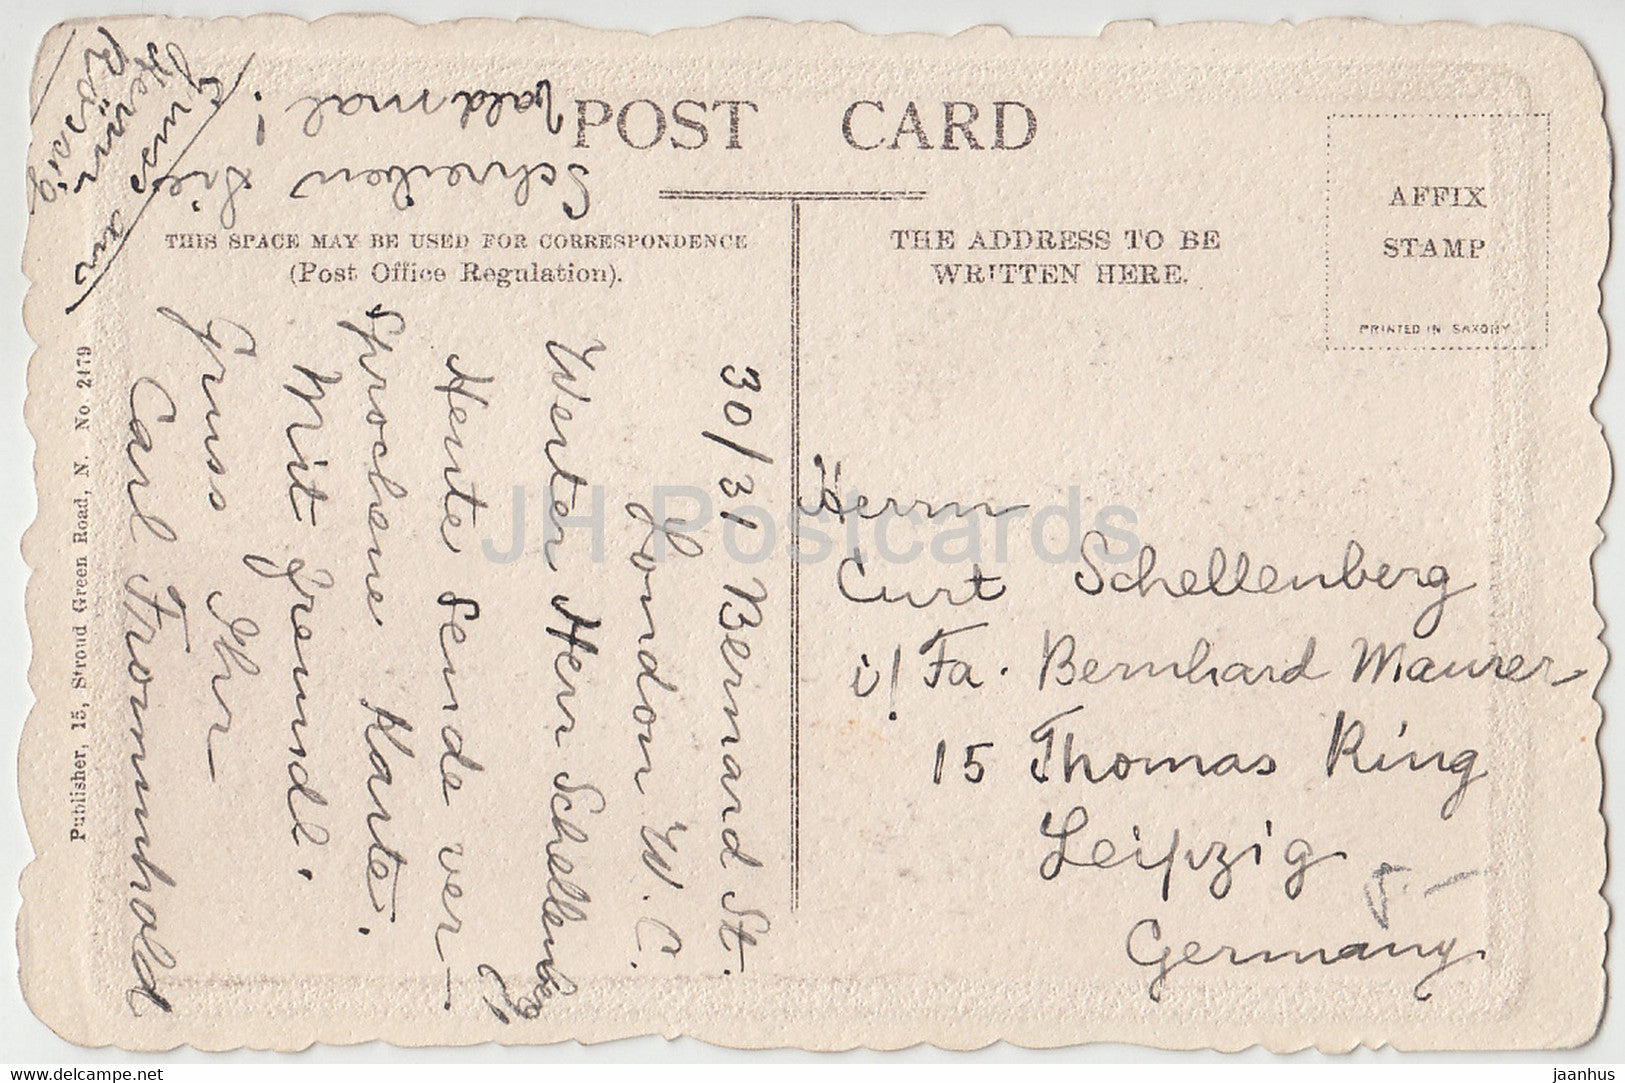 POST CARD
THIS SPACE MAY BE USED FOR CORRESPONDENCE
(Post Office Regulation).
THE ADDRESS TO BE
WRITTEN HERE.
AFFIX
STAMP
PRINTED IN SAXONY
30/31 Bernard St.
London W. C.
Werter Herr Schellenberg!
Heute sende ver-
sprochene Karte.
Mit freundl.
Gruss Ihr
Carl Frommhold
Schreiben Sie
bald mal!
Gruss an
Herrn
Rössig
Herrn
Curt Schellenberg
i/ Fa. Bernhard Maurer
15 Thomas Ring
Leipzig
Germany.
Publisher, 15, Stroud Green Road, N. No. 2479
JH Postcards
https://jhpostcards.com
jaanhus